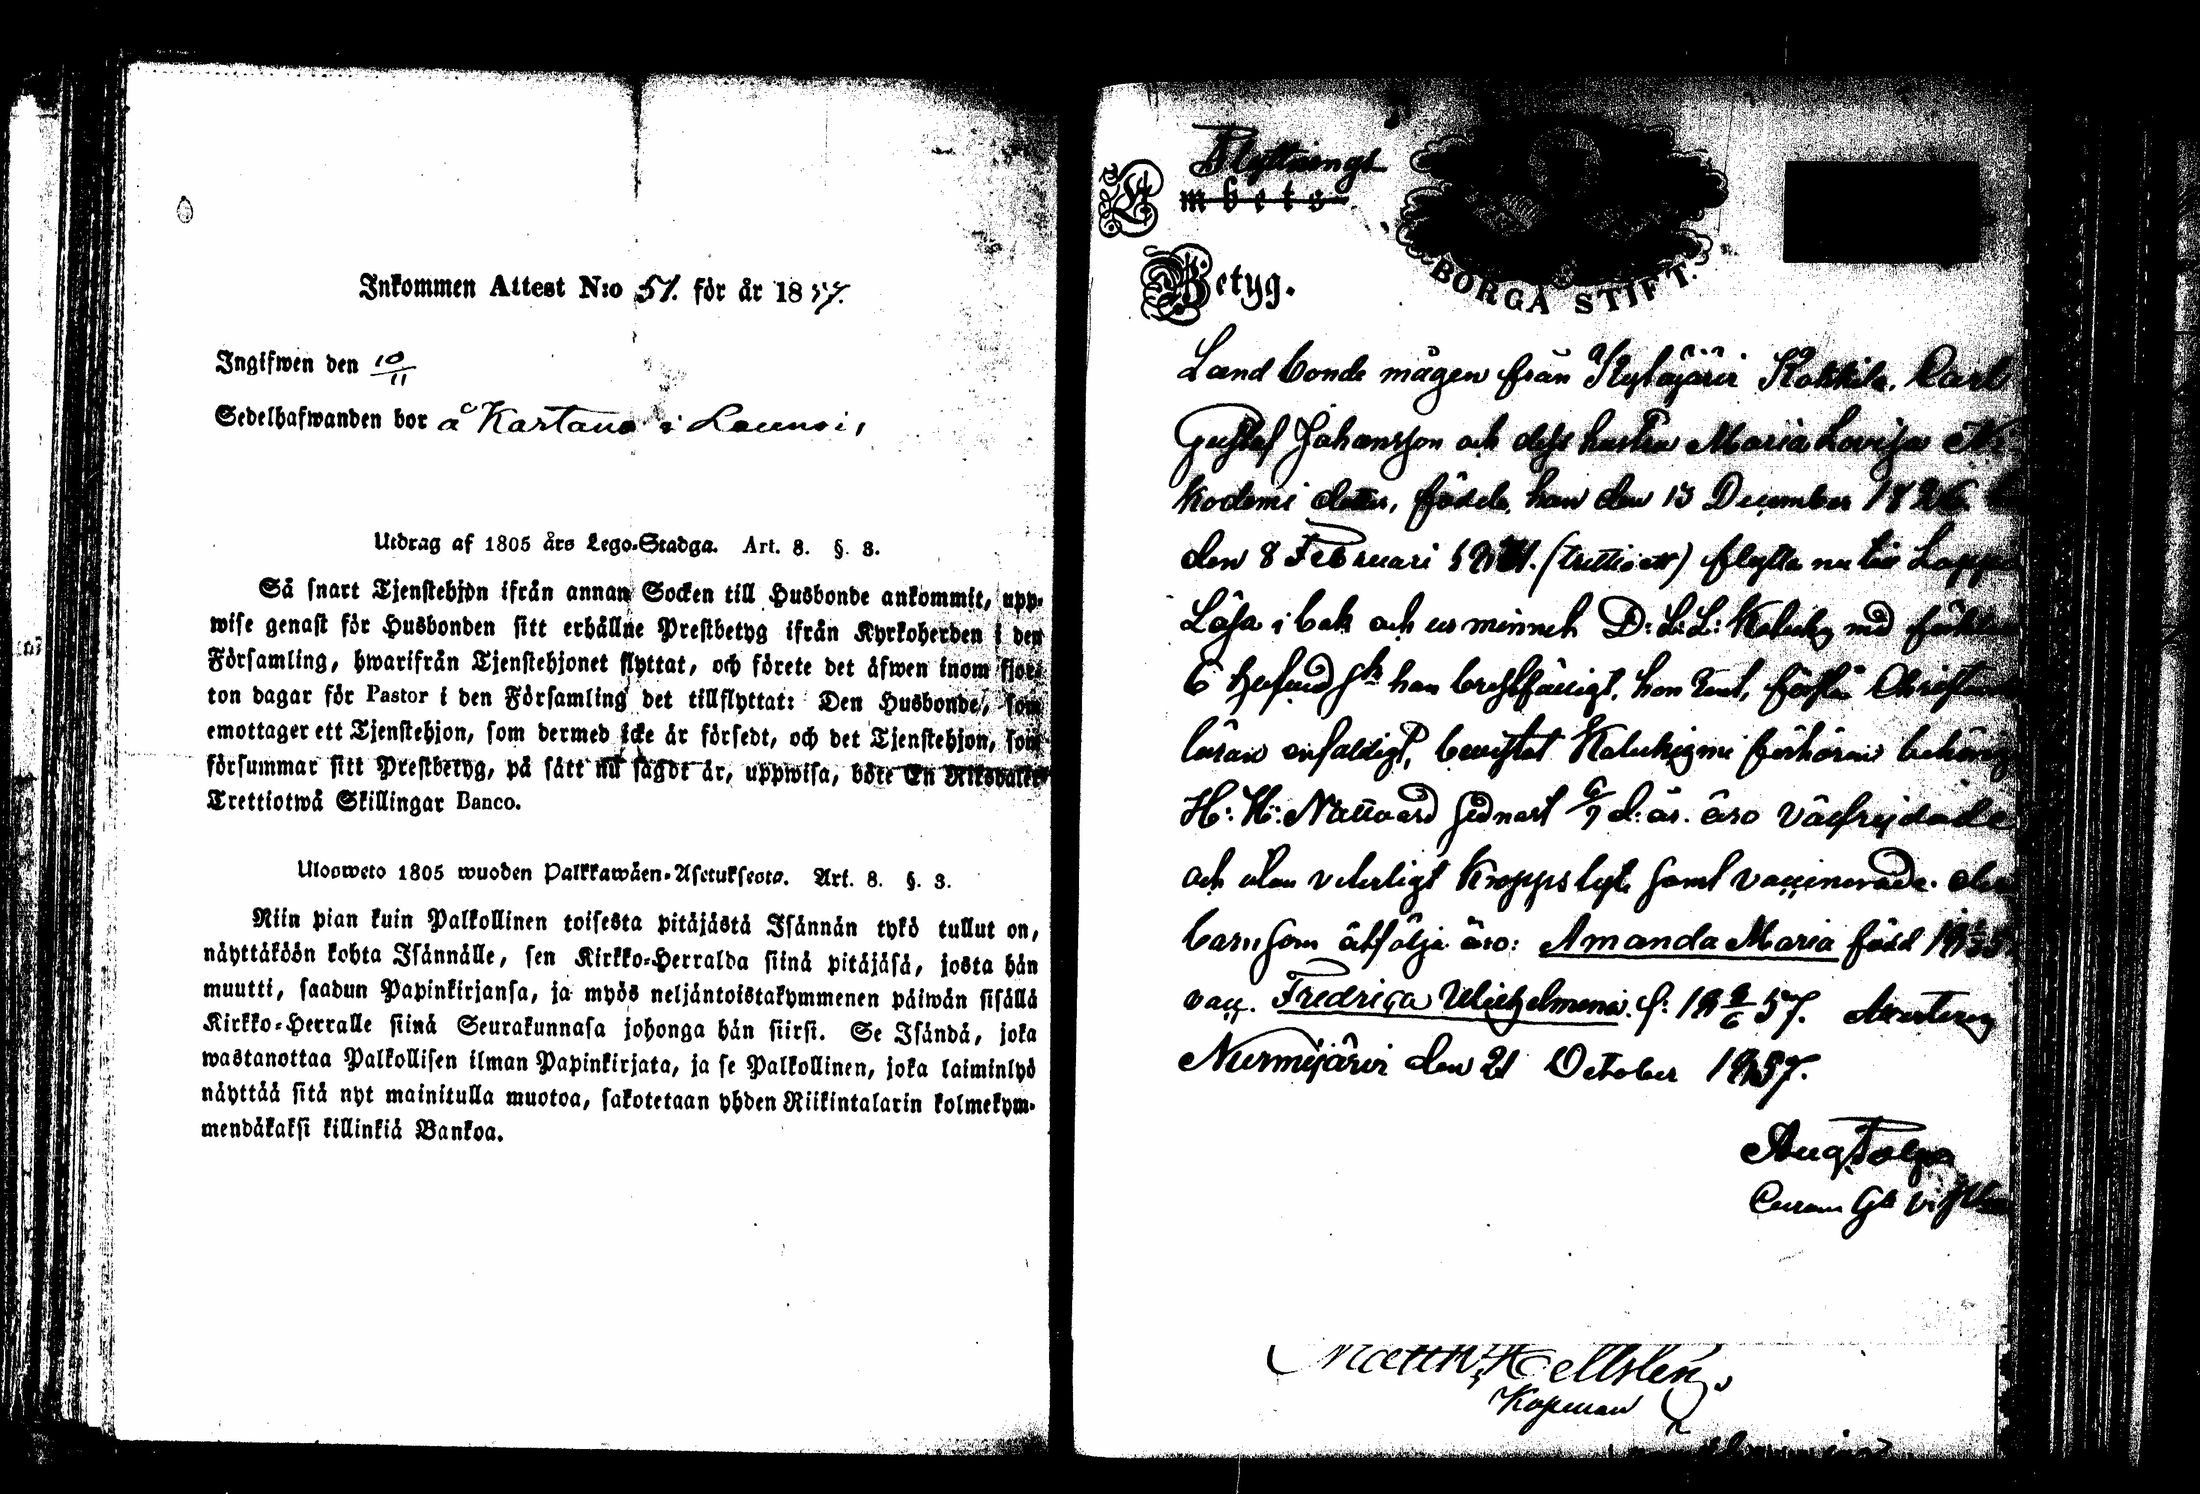 Inkommen Attest N:o 51. för år 1857.
Ingifwen den 10/11
Sedelhafwanden bor å Kartano i Launoi,
Utdrag af 1805 års Lego-Stadga. Art. 8. §. 3.
Så snart Tjenstehjon ifrån annan Socken till Husbonde ankommit, upp-
wise genast för Husbonden sitt erhållne Prestbetyg ifrån Kyrkoherden i den
Församling, hwarifrån Tjenstehjonet flyttat, och förete det äfwen inom fjor-
ton dagar för Pastor i den Församling det tillflyttat: Den Husbonde, som
emottager ett Tjenstehjon, som dermed icke är försedt, och det Tjenstehjon, som
försummar sitt Prestbetyg, på sått nu sagdt är, uppwisa, böte En Riksdaler
Trettiotwå Skillingar Banco.
Ulosweto 1805 wuoden Palkkawäen-Asetuksesta. Art. 8. §. 3.
Niin pian kuin Palkollinen toisesta pitäjästä Isännän tykö tullut on,
näyttäköön kohta Isännälle, sen Kirkko-Herralda siinä pitäjäsä, josta hän
muutti, saadun Papinkirjansa, ja myös neljäntoistakymmenen päiwän sisällä
Kirkko-Herralle siinä Seurakunnasa johonga hän siirsi. Se Isändä, joka
wastanottaa Palkollisen ilman Papinkirjata, ja se Palkollinen, joka laiminlyö
näyttää sitä nyt mainitulla muotoa, sakotetaan yhden Riikintalarin kolmekym-
mendäkaksi killinkiä Bankoa.
Flyttnings
Ambets-
Betyg.
BORGÅ STIFT.
Landbonde mågen från Kyläjärvi Kokkila, Carl
Gustaf Johansson och dess hustru Maria Lovisa Ni-
kodemi dotter, födde, han den 13 December 1826
den 8 Februari 1831. (trettioett) flytta nu till Loppis
Läsa i bok och ur minnet D: L: L: med
6 han försvarligt, hon förstå Christendoms
läran enfaldigt, bevistat förhören behörigt
H: H: Nattvard sednast 6/9 d: år. äro välfrejdade
och utan veterligt Kroppslyte samt vaccinerade. deras
barn som åtfölja äro: Amanda Maria född
vacc. Fredrica Wilhelmina f: 18 9/6 57. Attesterar
Nurmijärvi den 21 October 1857.
Aug
Hellsten